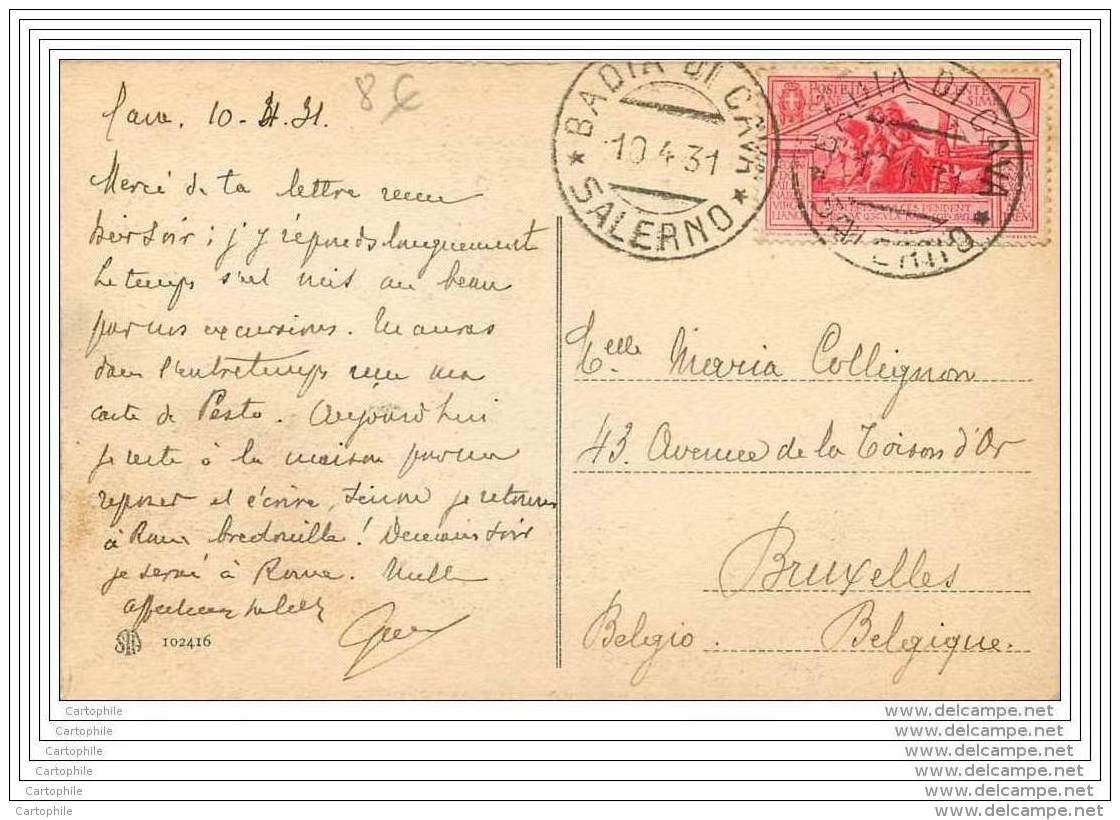 8€
Cava. 10-4.31.
Merci de ta lettre reçue
hier soir ; j'y réponds longuement
Le temps s'est mis au beau
pour nos excursions. Tu auras
dans l'entretemps reçu ma
carte de Pesto. Aujourd'hui
je reste à la maison pour me
reposer et écrire, sinon je retourne
à Rome bredouille ! Demain soir
je serai à Rome. Mille
affectueux
102416
BADIA DI CAVA
10.4.31
* SALERNO *
POSTE ITA
75
BADIA DI CAVA
* SALERNO *
Melle Maria Collignon
43. Avenue de la Toison d'Or
Bruxelles
Belgio. Belgique.
Cartophile www.delcampe.net
Cartophile www.delcampe.net
Cartophile www.delcampe.net
Cartophile www.delcampe.net
Cartophile www.delcampe.net
Cartophile www.delcampe.net